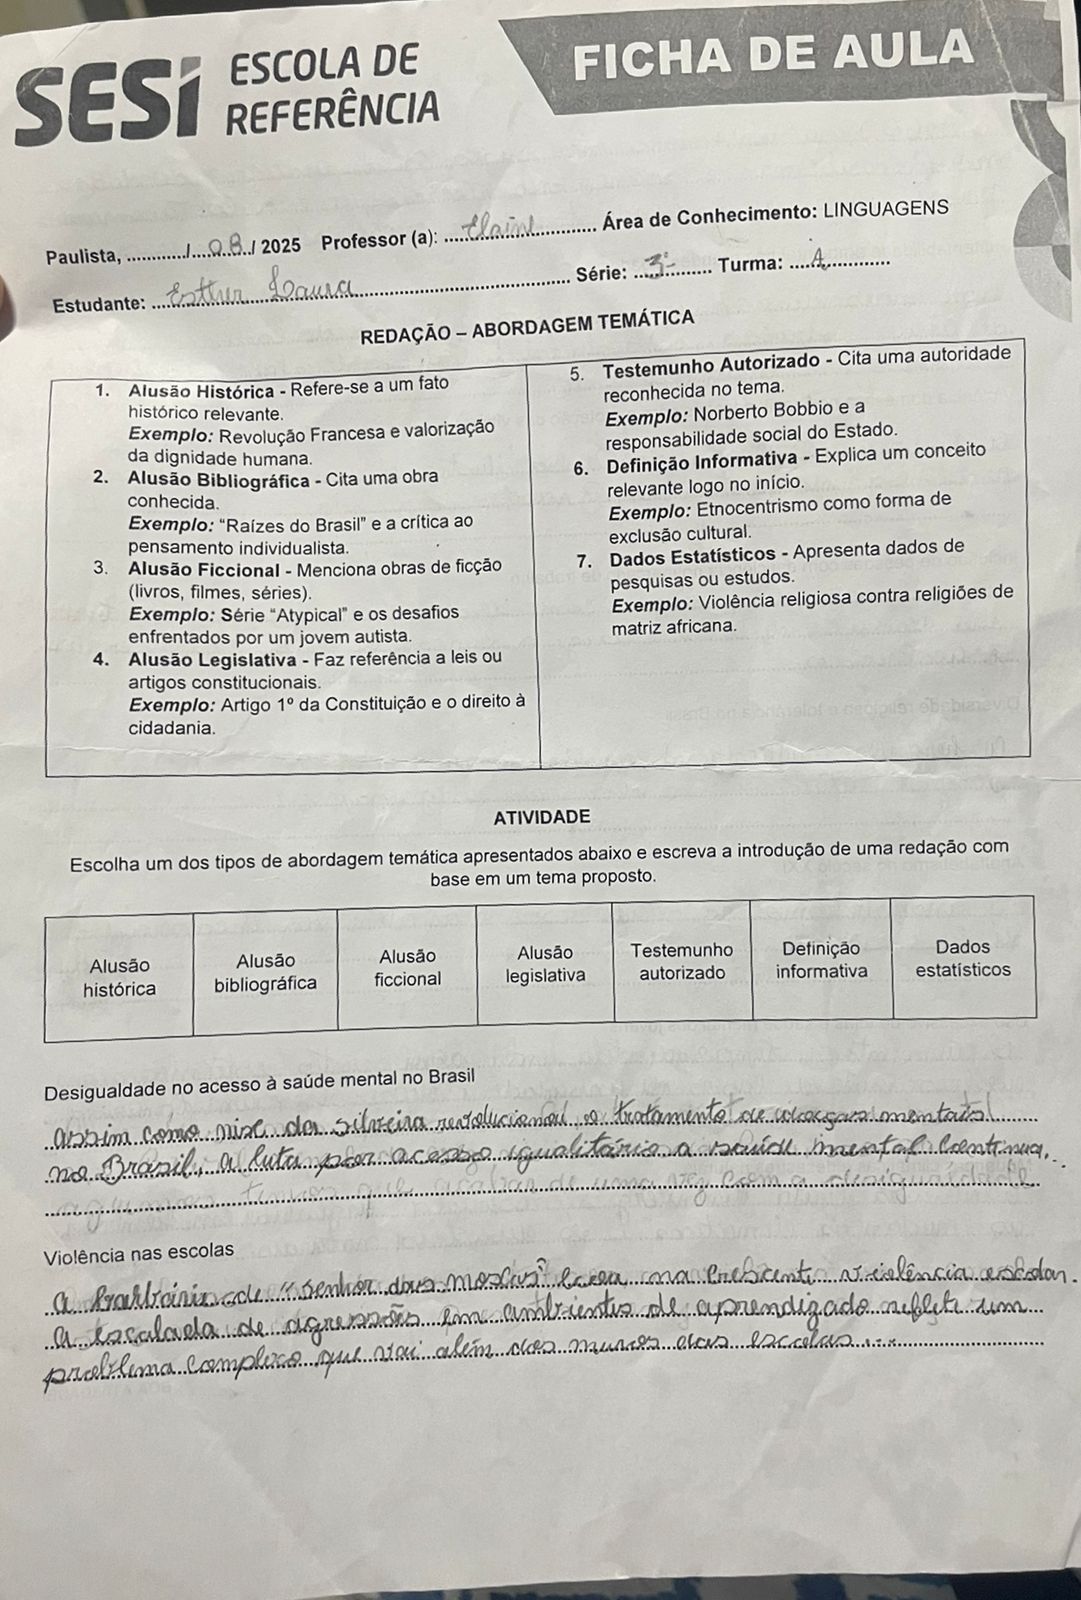 SESI ESCOLA DE
REFERÊNCIA
FICHA DE AULA
Paulista, ............/....08../ 2025 Professor (a): ...Elaine............ Área de Conhecimento: LINGUAGENS
Estudante: ..Esther Laura.............................. Série: ...3ª........ Turma: ...A.............
REDAÇÃO – ABORDAGEM TEMÁTICA
1. Alusão Histórica - Refere-se a um fato
histórico relevante.
Exemplo: Revolução Francesa e valorização
da dignidade humana.
2. Alusão Bibliográfica - Cita uma obra
conhecida.
Exemplo: “Raízes do Brasil” e a crítica ao
pensamento individualista.
3. Alusão Ficcional - Menciona obras de ficção
(livros, filmes, séries).
Exemplo: Série “Atypical” e os desafios
enfrentados por um jovem autista.
4. Alusão Legislativa - Faz referência a leis ou
artigos constitucionais.
Exemplo: Artigo 1º da Constituição e o direito à
cidadania.
5. Testemunho Autorizado - Cita uma autoridade
reconhecida no tema.
Exemplo: Norberto Bobbio e a
responsabilidade social do Estado.
6. Definição Informativa - Explica um conceito
relevante logo no início.
Exemplo: Etnocentrismo como forma de
exclusão cultural.
7. Dados Estatísticos - Apresenta dados de
pesquisas ou estudos.
Exemplo: Violência religiosa contra religiões de
matriz africana.
ATIVIDADE
Escolha um dos tipos de abordagem temática apresentados abaixo e escreva a introdução de uma redação com
base em um tema proposto.
Alusão
histórica
Alusão
bibliográfica
Alusão
ficcional
Alusão
legislativa
Testemunho
autorizado
Definição
informativa
Dados
estatísticos
Desigualdade no acesso à saúde mental no Brasil
assim como nise da silveira revolucionou o tratamento de doenças mentais
no Brasil, a luta por acesso igualitário a saúde mental continua.
Violência nas escolas
a barbárie de "senhor das moscas" ecoa na crescente violência escolar.
a escalada de agressões em ambientes de aprendizado reflete um
problema complexo que vai além dos muros das escolas...